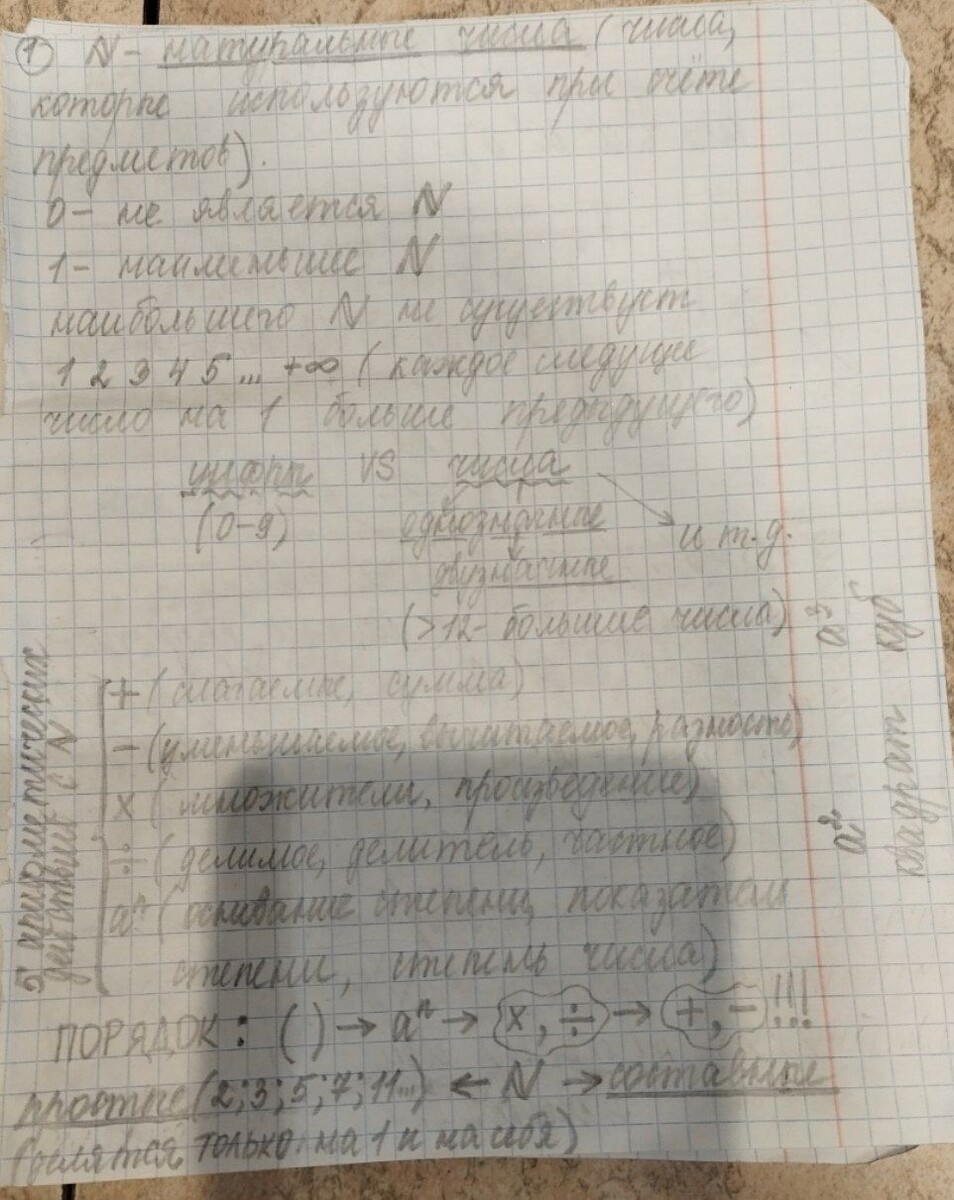 ① N - натуральные числа (числа,
которые используются при счёте
предметов).
0 - не является N
1 - наименьшее N
наибольшего N не существует
1 2 3 4 5 ... +∞ (каждое следущее
число на 1 больше предыдущего)
цифры VS числа
(0-9) однозначные и т.д.
двузначные
(>12 - большие числа)
5 арифметических
действий с N
+ (слагаемые, сумма)
- (уменьшаемое, вычитаемое, разность)
× (множители, произведение)
÷ (делимое, делитель, частное)
aⁿ (основание степени, показатель
степени, степень числа)
a² квадрат
a³ куб
ПОРЯДОК: ( ) → aⁿ → ×, ÷ → +, - !!!
простые (2; 3; 5; 7; 11...) ← N → составные
(делятся только на 1 и на себя)